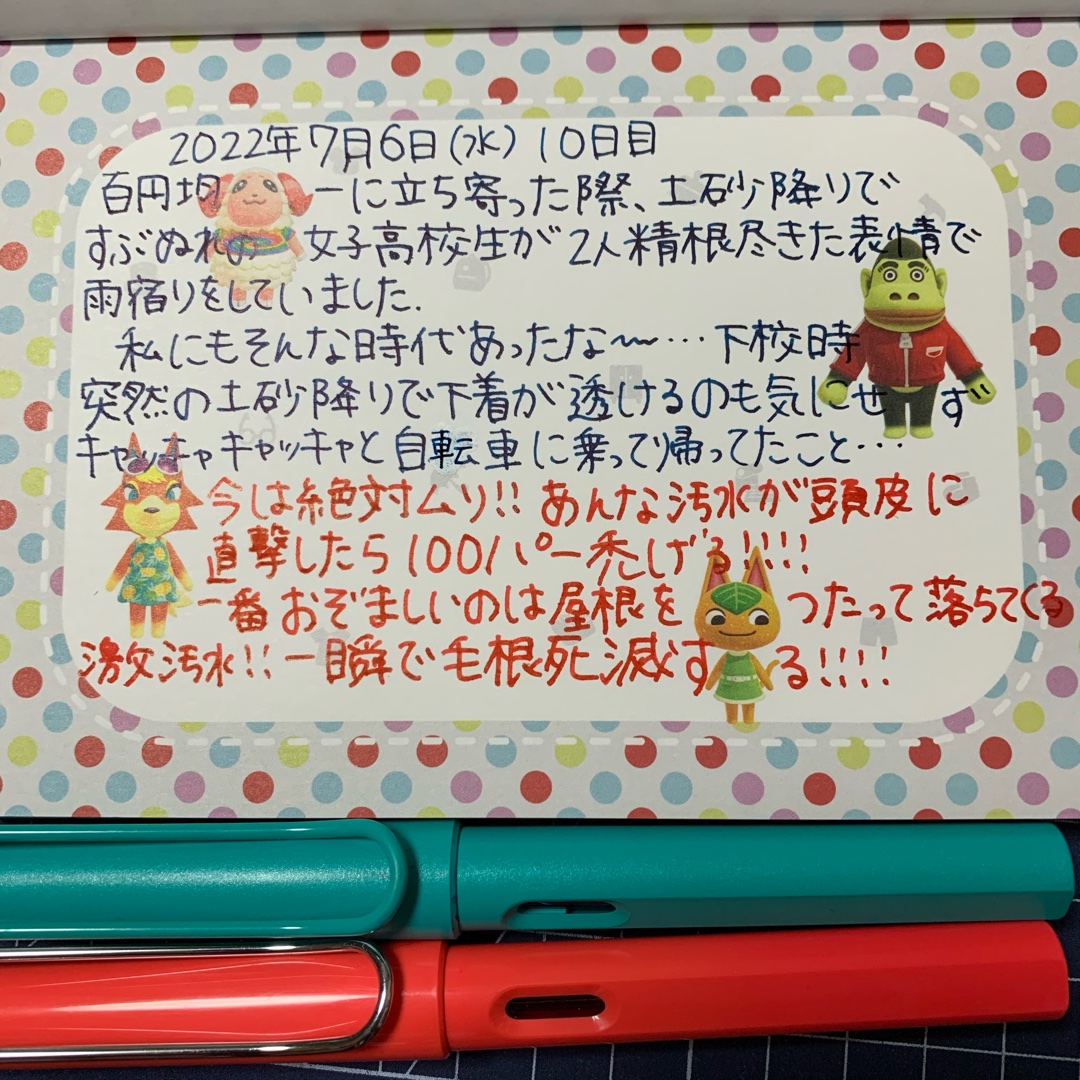 2022年7月6日(水) 10日目
百円均一に立ち寄った際、土砂降りで
すぶぬれの女子高校生が2人精根尽きた表情で
雨宿りをしていました.
私にもそんな時代あったな〜…下校時
突然の土砂降りで下着が透けるのも気にせず
キャッキャキャッキャと自転車に乗って帰ってたこと…
今は絶対ムリ!!あんな汚水が頭皮に
直撃したら100%パー禿げる!!!!
一番おぞましいのは屋根をつたって落ちてくる
激父汚水!!一瞬で毛根死滅する!!!!